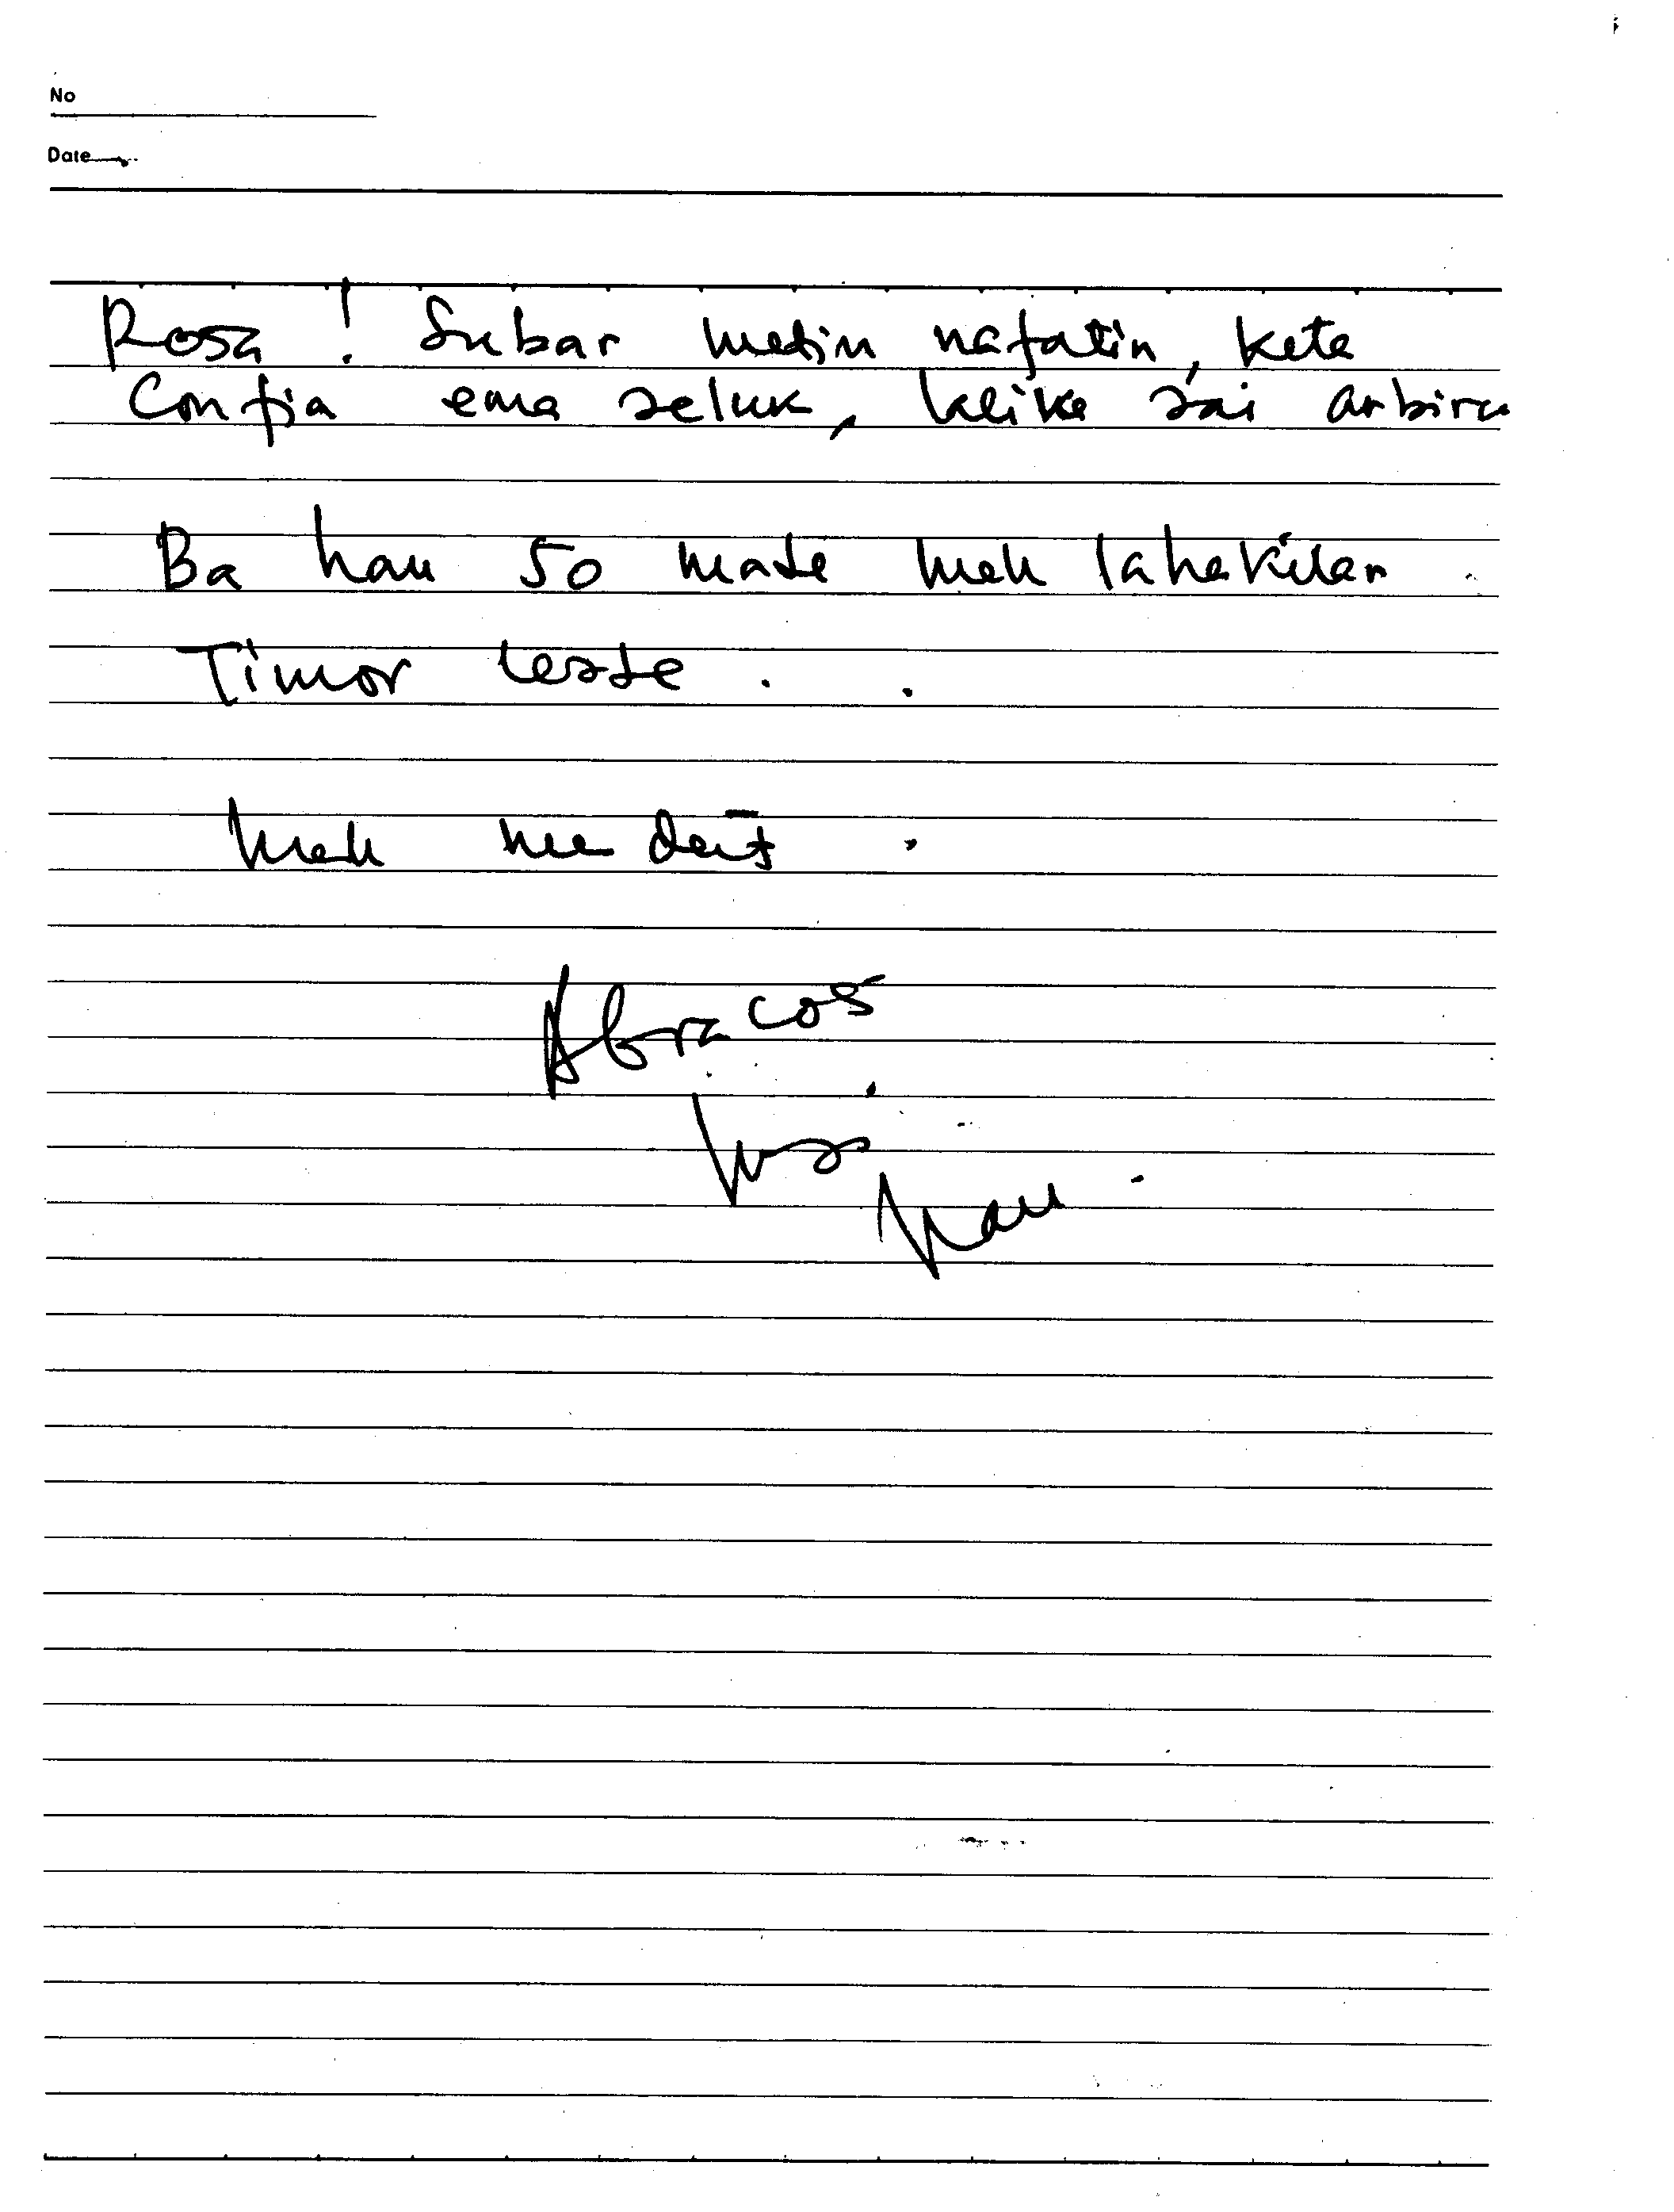 No
Date
Rosa! Subar metin nafatin, kete
Confia ema seluk, keike sai arbiru
Ba hau so mate mak lahakilar
Timor leste.
mak ne deit.
Abracos
Hau.